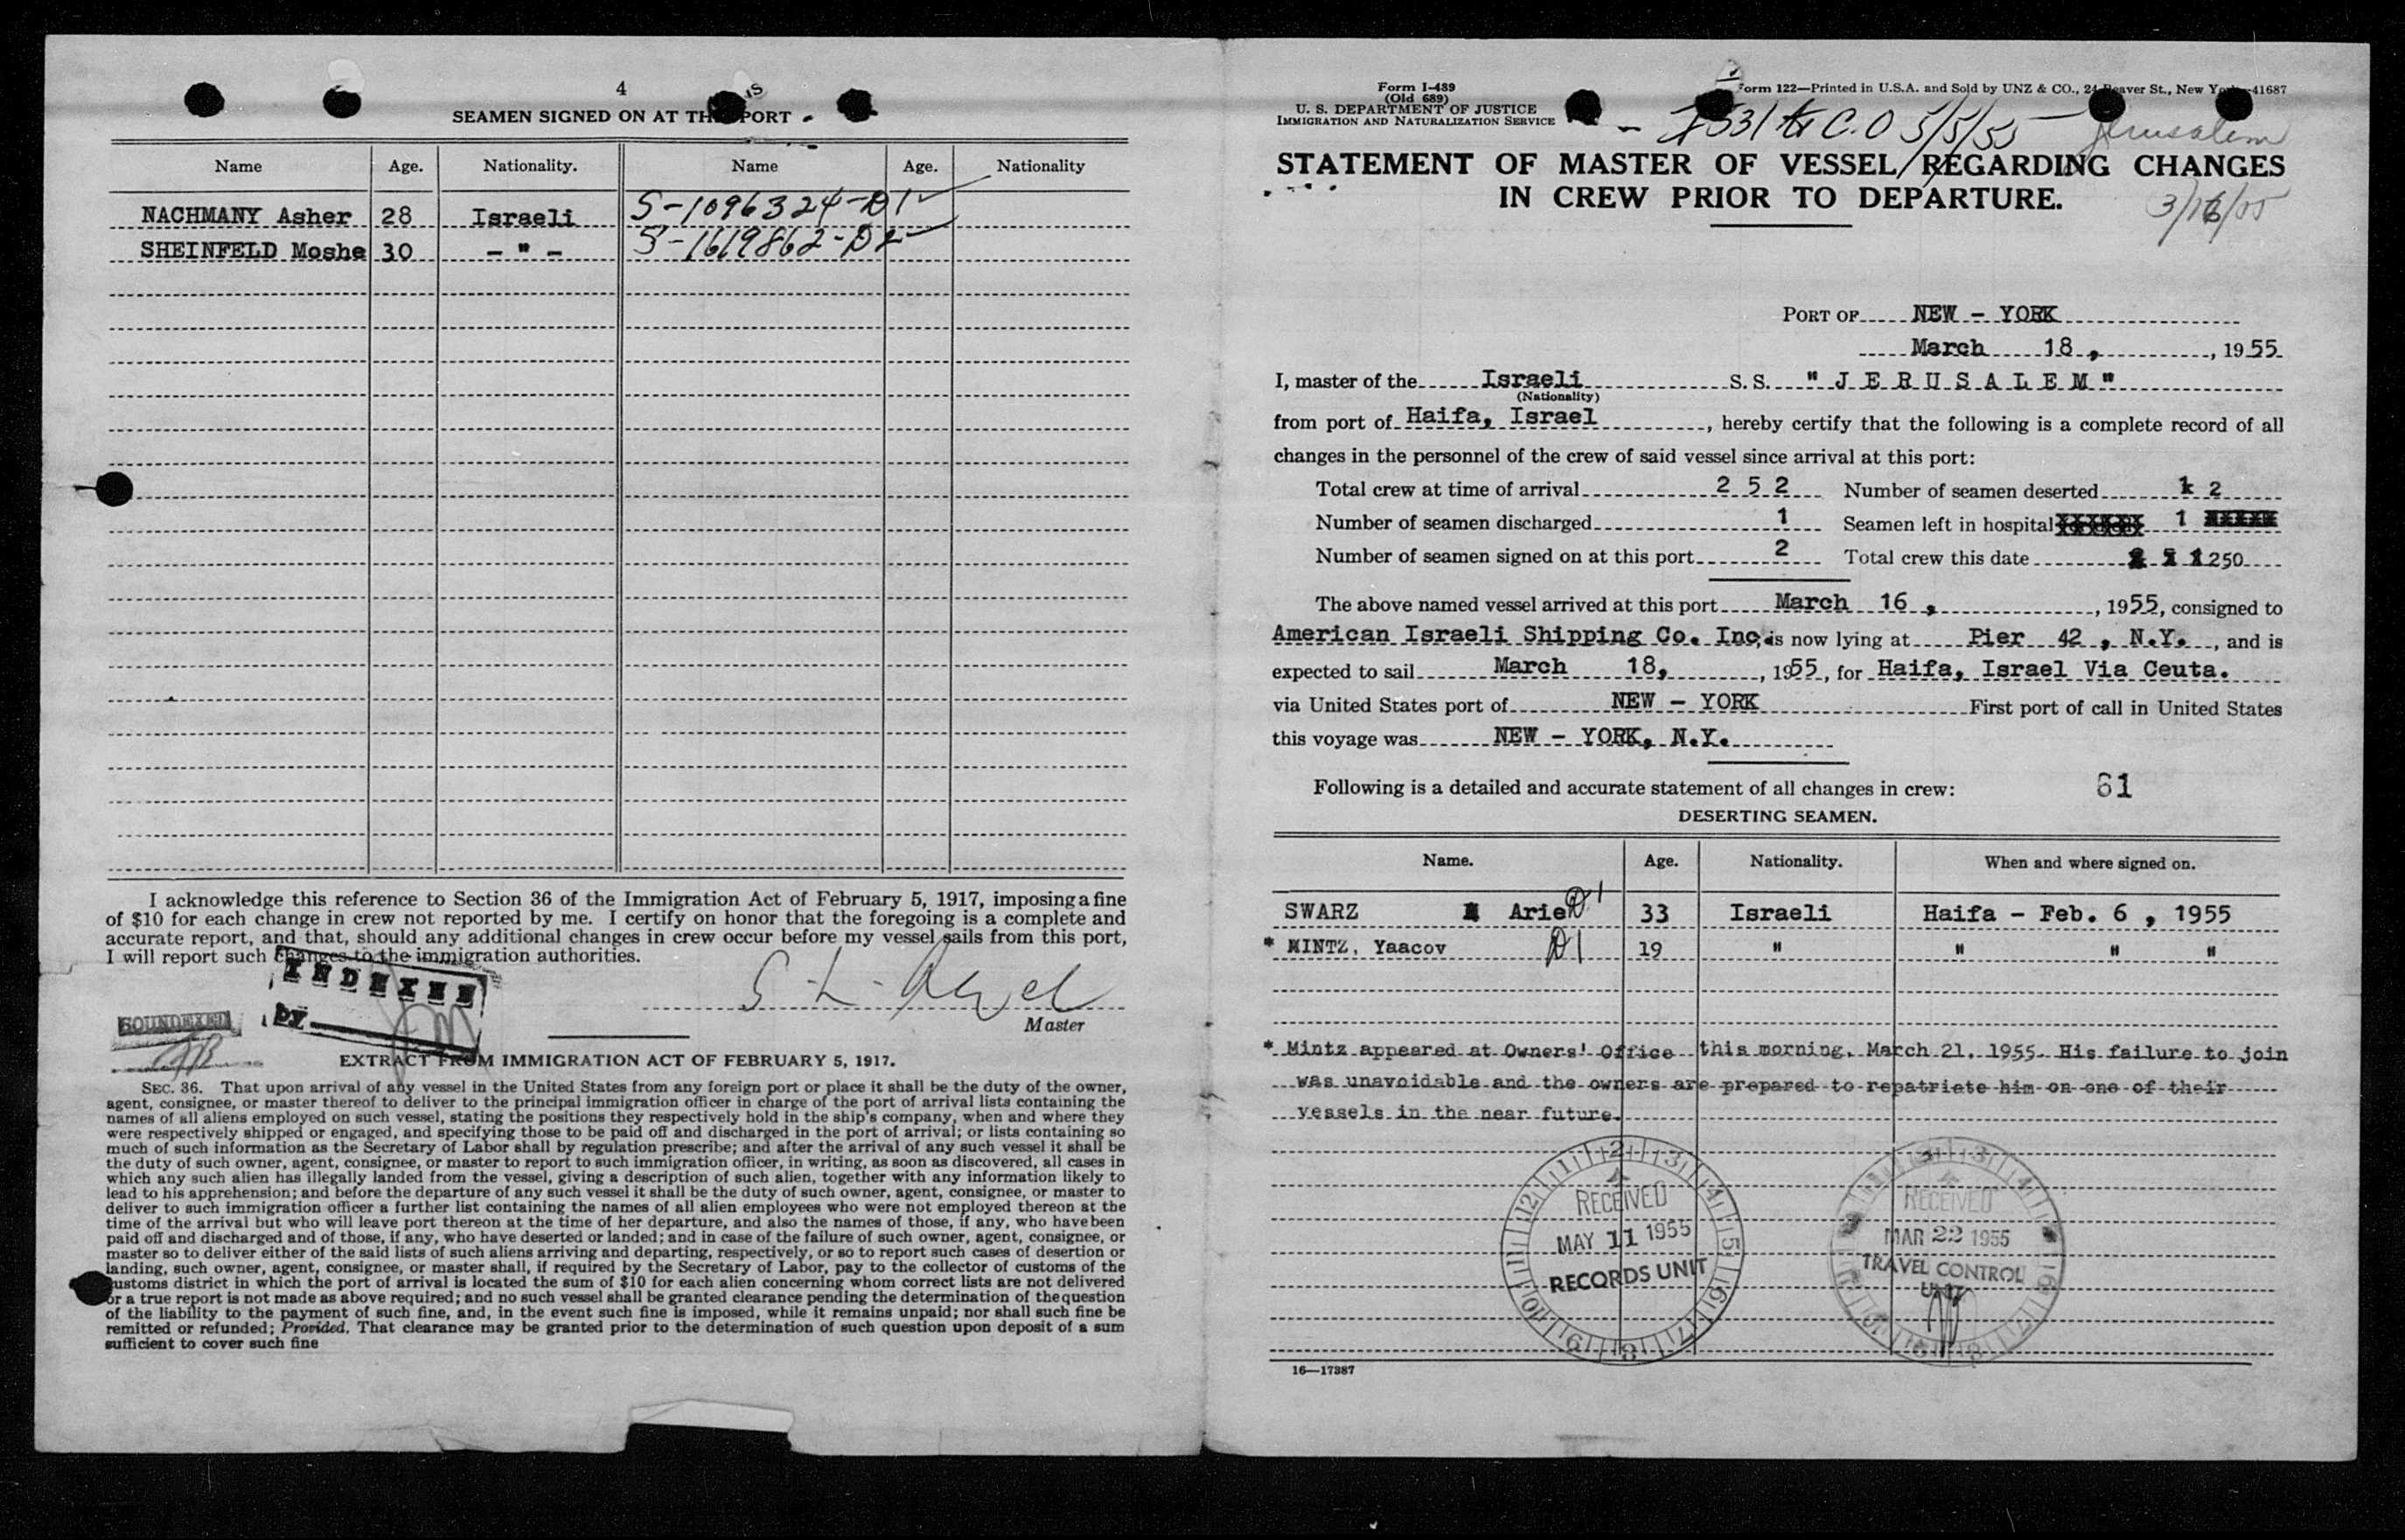 4
SEAMEN SIGNED ON AT THIS PORT
Name Age. Nationality. Name Age. Nationality
NACHMANY Asher 28 Israeli S-1096324-D1
SHEINFELD Moshe 30 - " - S-1619862-D2
I acknowledge this reference to Section 36 of the Immigration Act of February 5, 1917, imposing a fine
of $10 for each change in crew not reported by me. I certify on honor that the foregoing is a complete and
accurate report, and that, should any additional changes in crew occur before my vessel sails from this port,
I will report such changes to the immigration authorities.
INDEXED
by
SOUNDEXED
Master
EXTRACT FROM IMMIGRATION ACT OF FEBRUARY 5, 1917.
SEC. 36. That upon arrival of any vessel in the United States from any foreign port or place it shall be the duty of the owner,
agent, consignee, or master thereof to deliver to the principal immigration officer in charge of the port of arrival lists containing the
names of all aliens employed on such vessel, stating the positions they respectively hold in the ship's company, when and where they
were respectively shipped or engaged, and specifying those to be paid off and discharged in the port of arrival; or lists containing so
much of such information as the Secretary of Labor shall by regulation prescribe; and after the arrival of any such vessel it shall be
the duty of such owner, agent, consignee, or master to report to such immigration officer, in writing, as soon as discovered, all cases in
which any such alien has illegally landed from the vessel, giving a description of such alien, together with any information likely to
lead to his apprehension; and before the departure of any such vessel it shall be the duty of such owner, agent, consignee, or master to
deliver to such immigration officer a further list containing the names of all alien employees who were not employed thereon at the
time of the arrival but who will leave port thereon at the time of her departure, and also the names of those, if any, who have been
paid off and discharged and of those, if any, who have deserted or landed; and in case of the failure of such owner, agent, consignee, or
master so to deliver either of the said lists of such aliens arriving and departing, respectively, or so to report such cases of desertion or
landing, such owner, agent, consignee, or master shall, if required by the Secretary of Labor, pay to the collector of customs of the
customs district in which the port of arrival is located the sum of $10 for each alien concerning whom correct lists are not delivered
or a true report is not made as above required; and no such vessel shall be granted clearance pending the determination of the question
of the liability to the payment of such fine, and, in the event such fine is imposed, while it remains unpaid; nor shall such fine be
remitted or refunded; Provided, That clearance may be granted prior to the determination of such question upon deposit of a sum
sufficient to cover such fine
Form I-489
(Old 689)
U. S. DEPARTMENT OF JUSTICE
IMMIGRATION AND NATURALIZATION SERVICE
Form 122—Printed in U.S.A. and Sold by UNZ & CO., 24 Beaver St., New York—41687
C.O 5/5/55
Jerusalem
STATEMENT OF MASTER OF VESSEL REGARDING CHANGES
IN CREW PRIOR TO DEPARTURE.
3/16/55
PORT OF NEW - YORK
March 18, , 1955
I, master of the Israeli S. S. " J E R U S A L E M "
(Nationality)
from port of Haifa, Israel , hereby certify that the following is a complete record of all
changes in the personnel of the crew of said vessel since arrival at this port:
Total crew at time of arrival 2 5 2 Number of seamen deserted 2
Number of seamen discharged 1 Seamen left in hospital 1
Number of seamen signed on at this port 2 Total crew this date 250
The above named vessel arrived at this port March 16 , , 1955, consigned to
American Israeli Shipping Co. Inc, is now lying at Pier 42 , N.Y. , and is
expected to sail March 18, , 1955, for Haifa, Israel Via Ceuta.
via United States port of NEW - YORK First port of call in United States
this voyage was NEW - YORK, N.Y.
Following is a detailed and accurate statement of all changes in crew: 61
DESERTING SEAMEN.
Name. Age. Nationality. When and where signed on.
SWARZ Arie D1 33 Israeli Haifa - Feb. 6 , 1955
* MINTZ, Yaacov D1 19 " " " "
* Mintz appeared at Owners' Office this morning, March 21, 1955. His failure to join
was unavoidable and the owners are prepared to repatriate him on one of their
vessels in the near future.
RECEIVED
MAY 11 1955
RECORDS UNIT
RECEIVED
MAR 22 1955
TRAVEL CONTROL
UNIT
16—17387